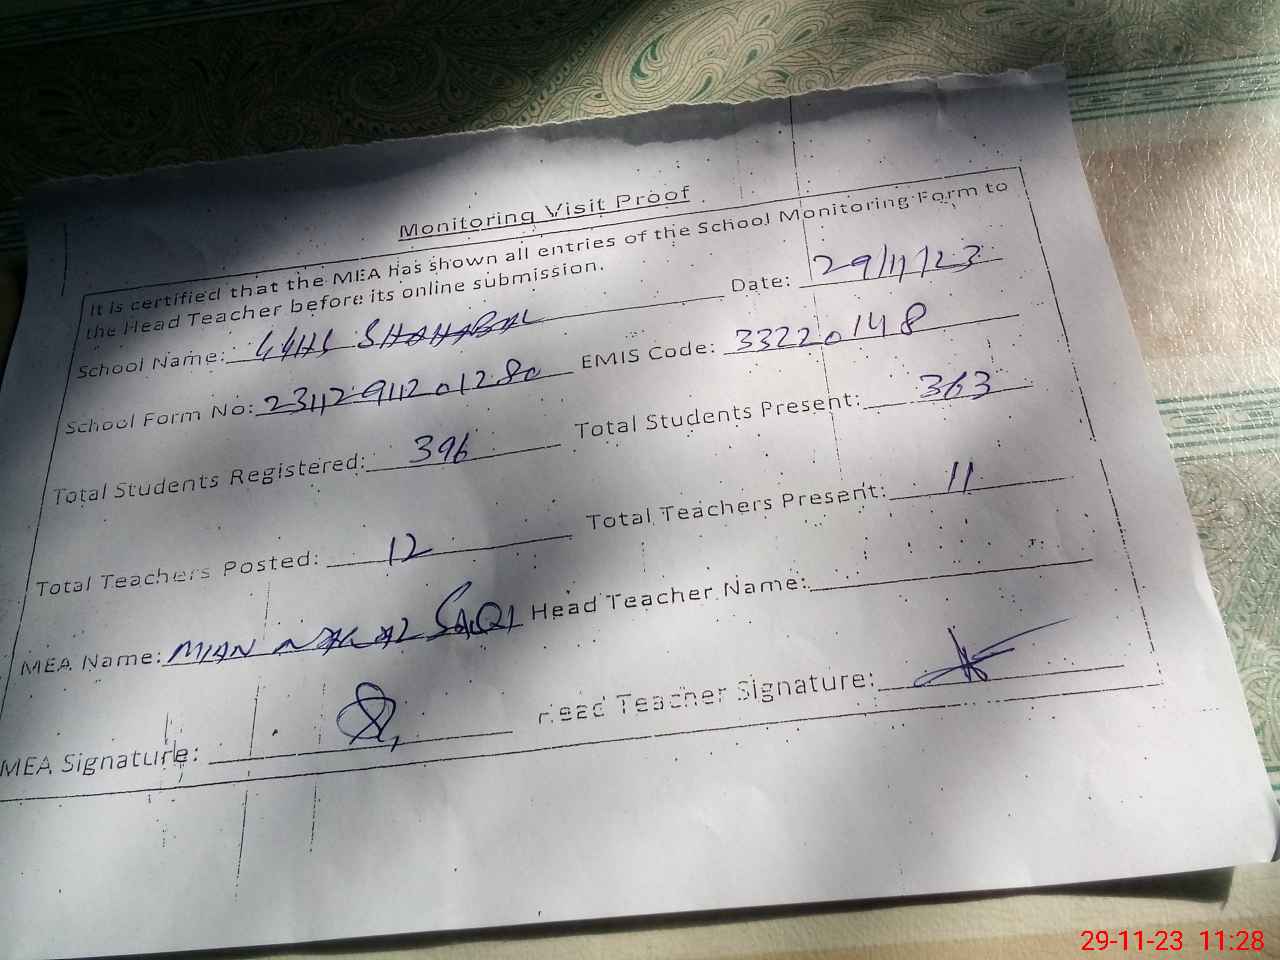 Monitoring Visit Proof
It is certified that the MEA has shown all entries of the School Monitoring Form to
the Head Teacher before its online submission.
Date: 29/11/23
School Name: GGHS SHAHABAL
School Form No: EMIS Code: 33220148
Total Students Registered: 396 Total Students Present: 363
Total Teachers Posted: 12 Total Teachers Present: 11
MEA Name: MIAN SAQI Head Teacher Name:
MEA Signature: Head Teacher Signature:
29-11-23 11:28